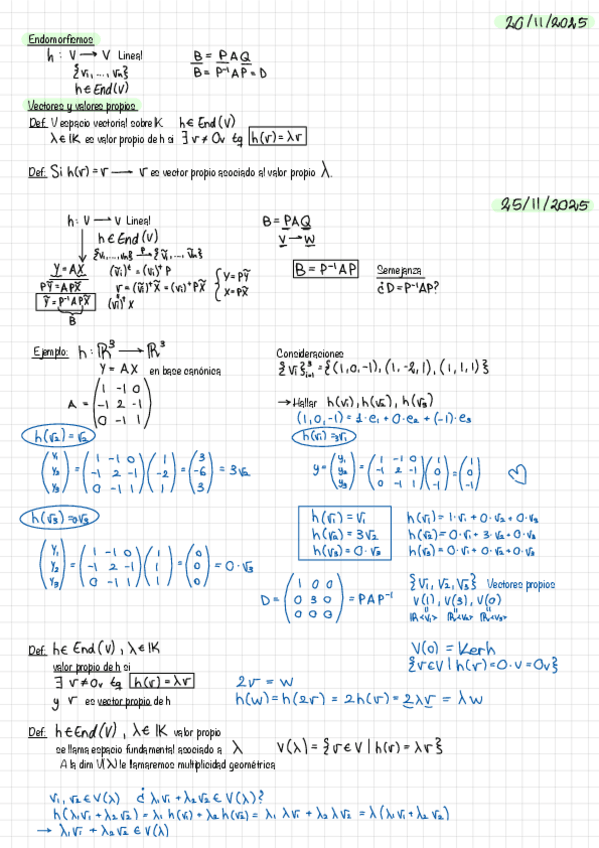 20/11/2025
Endomorfismos
h : V → V Lineal
{v₁, ..., vₙ}
h ∈ End(V)
B = PAQ
B = P⁻¹AP = D
Vectores y valores propios
Def. V espacio vectorial sobre K h ∈ End(V)
λ ∈ K es valor propio de h si ∃ v ≠ 0v tq h(v) = λv
Def. Si h(v) = v → v es vector propio asociado al valor propio λ.
25/11/2025
h : V → V Lineal
h ∈ End(V)
{v₁, ..., vₙ} P→ {ṽ₁, ..., ṽₙ}
Y = AX (ṽi)ᵗ = (vi)ᵗ P
PỸ = APX̃ v = (ṽi)ᵗ X̃ = (vi)ᵗ PX̃ { Y = PỸ
Ỹ = P⁻¹APX̃ (vi)ᵗ X X = PX̃
B
B = PAQ
V → W
B = P⁻¹AP Semejanza
¿D = P⁻¹AP?
Ejemplo: h : ℝ³ → ℝ³
Y = AX en base canónica
A = (1 -1 0
-1 2 -1
0 -1 1)
Consideraciones
{vi}³ᵢ₌₁ = {(1, 0, -1), (1, -2, 1), (1, 1, 1)}
→ Hallar h(v₁), h(v₂), h(v₃)
(1, 0, -1) = 1·e₁ + 0·e₂ + (-1)·e₃
h(v₂) = v₂
(y₁ y₂ y₃) = (1 -1 0
-1 2 -1
0 -1 1) (1 -2 1) = (3 -6 3) = 3v₂
h(v₁) = 3v₁
y = (y₁ y₂ y₃) = (1 -1 0
-1 2 -1
0 -1 1) (1 0 -1) = (1 0 -1)
h(v₃) = 0v₃
(y₁ y₂ y₃) = (1 -1 0
-1 2 -1
0 -1 1) (1 1 1) = (0 0 0) = 0·v₃
h(v₁) = v₁ h(v₁) = 1·v₁ + 0·v₂ + 0·v₃
h(v₂) = 3v₂ h(v₂) = 0·v₁ + 3·v₂ + 0·v₃
h(v₃) = 0·v₃ h(v₃) = 0·v₁ + 0·v₂ + 0·v₃
D = (1 0 0
0 3 0
0 0 0) = PAP⁻¹
{v₁, v₂, v₃} Vectores propios
V(1), V(3), V(0)
ℝ<v₁> ℝ<v₂> ℝ<v₃>
V(0) = Ker h
{v ∈ V | h(v) = 0·v = 0v}
Def. h ∈ End(V), λ ∈ K
valor propio de h si
∃ v ≠ 0v tq h(v) = λv
y v es vector propio de h
2v = w
h(w) = h(2v) = 2h(v) = 2λv = λw
Def. h ∈ End(V), λ ∈ K valor propio
se llama espacio fundamental asociado a λ V(λ) = {v ∈ V | h(v) = λv}
A la dim V(λ) le llamaremos multiplicidad geométrica
v₁, v₂ ∈ V(λ) ¿λ₁v₁ + λ₂v₂ ∈ V(λ)?
h(λ₁v₁ + λ₂v₂) = λ₁h(v₁) + λ₂h(v₂) = λ₁λv₁ + λ₂λv₂ = λ(λ₁v₁ + λ₂v₂)
→ λ₁v₁ + λ₂v₂ ∈ V(λ)